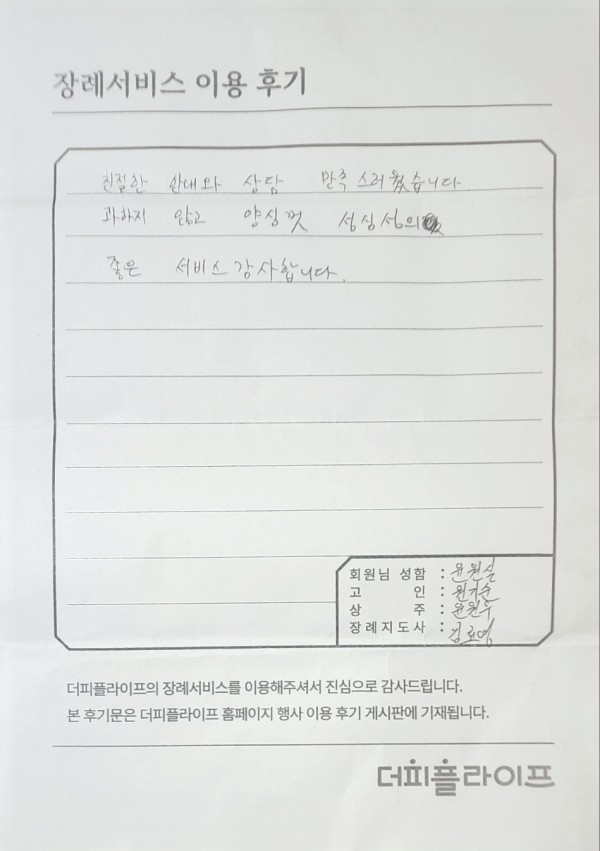 장례서비스 이용 후기
친절한 안내와 상담 만족 스러웠습니다.
과하지 않고 양심껏 성심성의
좋은 서비스 감사합니다.
회원님 성함 : 윤원실
고 인 :
상 주 : 윤원두
장례지도사 :
더피플라이프의 장례서비스를 이용해주셔서 진심으로 감사드립니다.
본 후기문은 더피플라이프 홈페이지 행사 이용 후기 게시판에 기재됩니다.
더피플라이프